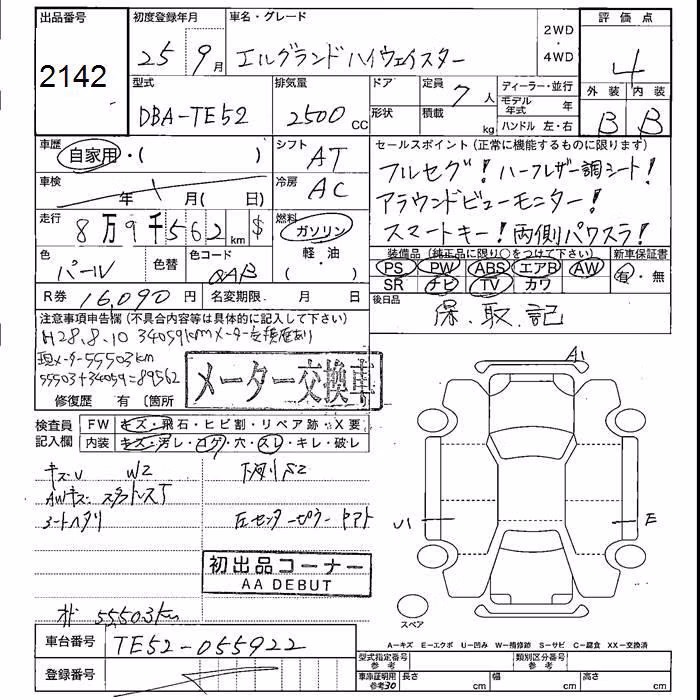 出品番号 初度登録年月 車名・グレード 評価点
2142 25 9月 エルグランド ハイウェイスター 2WD・4WD 4
型式 排気量 ドア 定員 ディーラー・並行 外装 内装
DBA-TE52 2500 CC 7人 モデル年式 年 B B
形状 積載 kg ハンドル 左・右
車歴 シフト セールスポイント (正常に機能するものに限ります)
自家用・( ) AT フルセグ! ハーフレザー調シート!
車検 冷房 アラウンドビューモニター!
年 月( 日) AC スマートキー! 両側パワスラ!
走行 燃料
8万9千562 km $ ガソリン
軽・油
装備品 (純正品に限り○をつけて下さい) 新車保証書
色 色替 色コード ( )
パール QAB
PS PW ABS エアB AW 有・無
SR ナビ TV カワ
R券 16,090円 名変期限. 月 日 後日品
保.取.記
注意事項申告欄 (不具合内容等は具体的に記入して下さい)
H28.8.10 34059kmメーター交換歴あり
現メーター55503km
55503+34059=89562
メーター交換車
修復歴 有 (箇所
検査員記入欄 FW キズ・飛石・ヒビ割・リペア跡・X要
内装 キズ・汚レ・コゲ・穴・スレ・キレ・破レ
A1
キズU W2 下廻りS2
AWキズ
シートヘタリ 左センターピラー
U1 E
初出品コーナー
AA DEBUT
55503km
スペア
A―キズ E―エクボ U―凹み W―補修跡 S―サビ C―腐食 XX―交換済
車台番号 TE52-055922
型式指定番号 参考 類別区分番号 参考
登録番号
車庫証明用 参考30 長さ cm 幅 cm 高さ cm